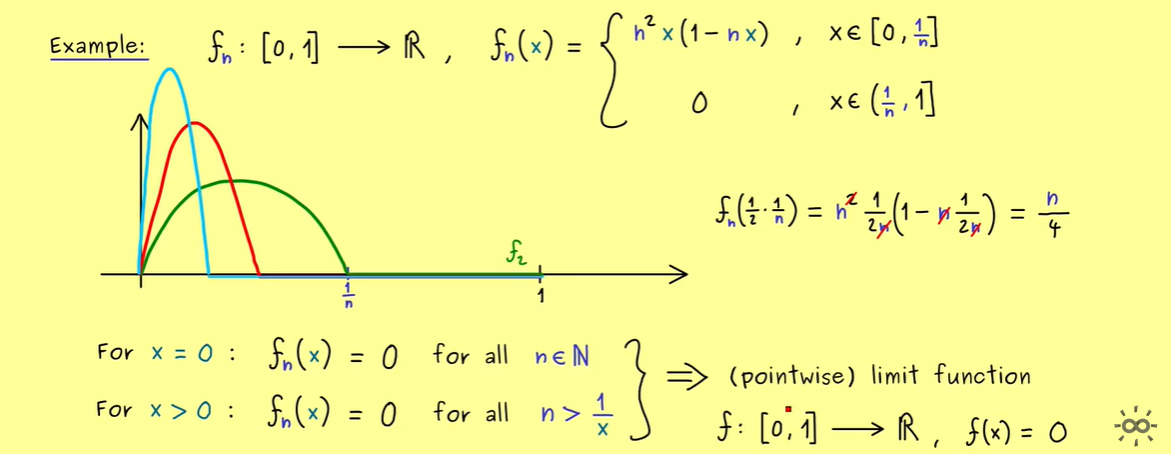 Example: fₙ : [0,1] ⟶ ℝ , fₙ(x) = { n² x (1 − n x) , x ∈ [0, 1/n]
0 , x ∈ (1/n, 1]
fₙ(1/2 · 1/n) = n² 1/2n (1 − n 1/2n) = n/4
f₂
1/n 1
For x = 0 : fₙ(x) = 0 for all n ∈ ℕ
For x > 0 : fₙ(x) = 0 for all n > 1/x
} ⟹ (pointwise) limit function
f : [0,1] ⟶ ℝ , f(x) = 0